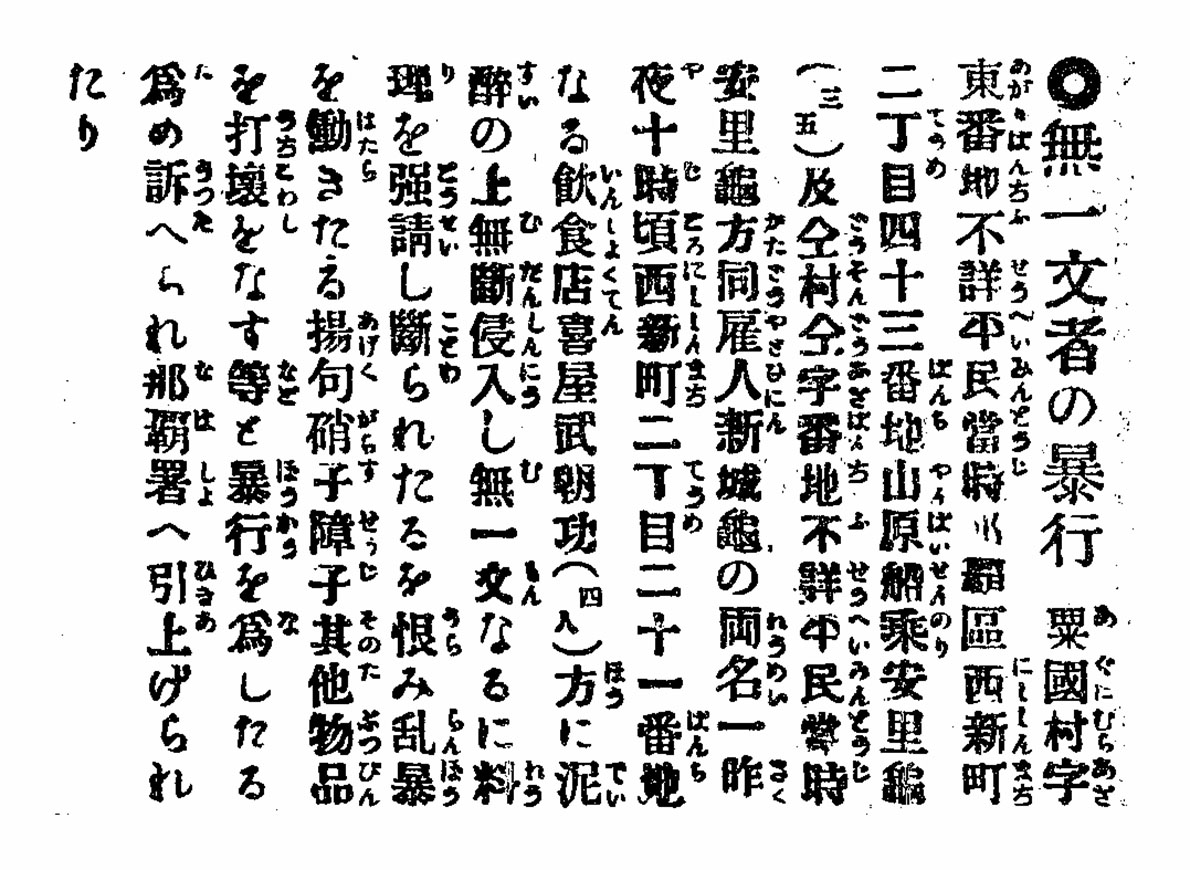 ◎無一文者の暴行　粟國村字
東番地不詳平民當時那覇區西新町
二丁目四十三番地山原船乘安里龜
(三五)及仝村仝字番地不詳平民當時
安里龜方同雇人新城龜の両名一昨
夜十時頃西新町二丁目二十一番地
なる飲食店喜屋武朝功(四八)方に泥
醉の上無斷侵入し無一文なるに料
理を强請し斷られたるを恨み乱暴
を働きたる揚句硝子障子其他物品
を打壞をなす等と暴行を爲したる
爲め訴へられ那覇署へ引上げられ
たり